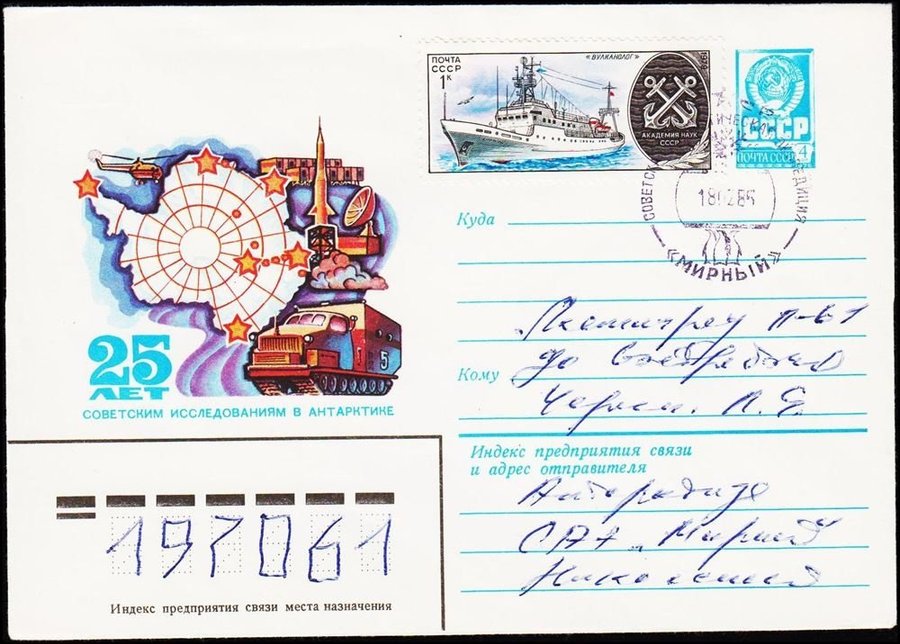 ПОЧТА
СССР
1к
«ВУЛКАНОЛОГ»
АКАДЕМИЯ НАУК
СССР
СССР
ПОЧТА СССР 4
СОВЕТСК ЭКСПЕДИЦИЯ
«МИРНЫЙ»
25
ЛЕТ
СОВЕТСКИМ ИССЛЕДОВАНИЯМ В АНТАРКТИКЕ
5
Куда
Ленинград П-61
до востребования
Кому
Индекс предприятия связи
и адрес отправителя
Антарктида
САЭ „Мирный
197061
Индекс предприятия связи места назначения